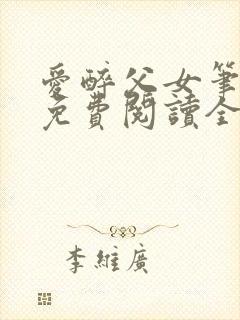 愛醉父女筆
免費閱讀全
李維廣